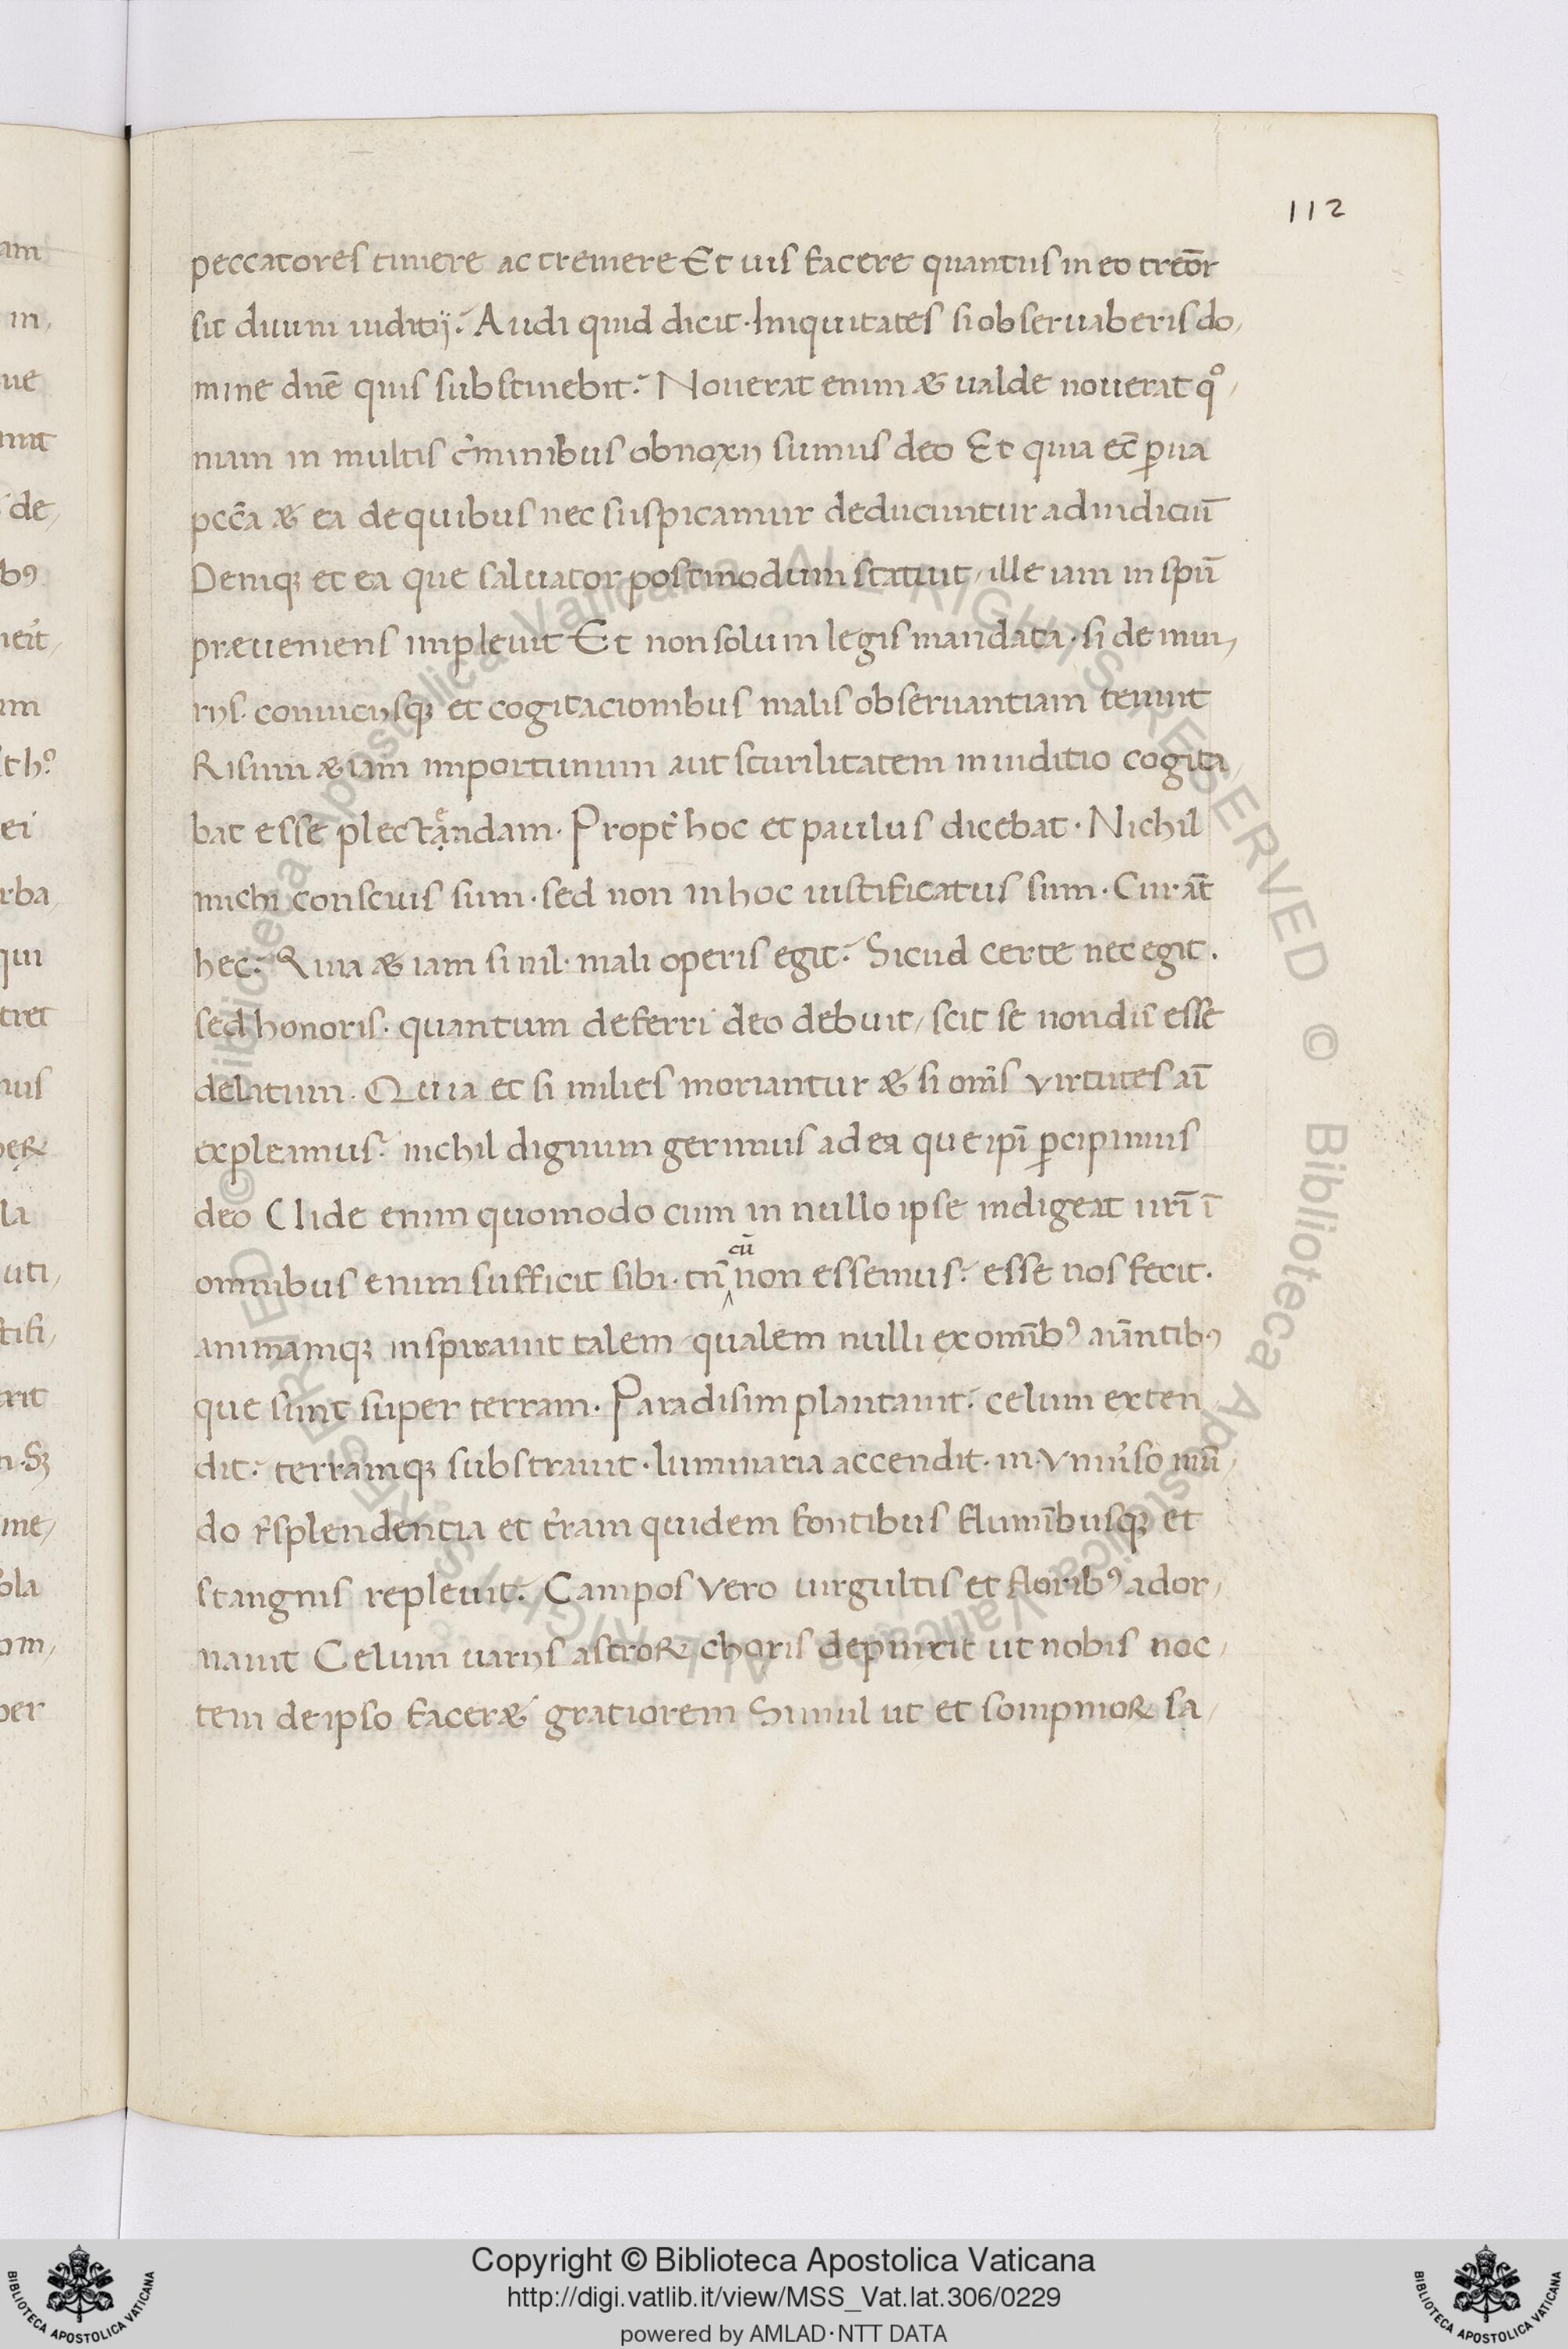 112
peccatores timere ac tremere Et uis facere quantus in eo tremor̄
sit diuini iuditij? Audi quid dicit · Iniquitates si obseruaberis do,
mine dn̄e quis substinebit? Nouerat enim & ualde nouerat qº,
niam in multis c̓minibus obnoxij sumus deo Et quia ec̄ ꝑua
pcc̄a & ea de quibus nec suspicamur deducuntur ad iudiciū
Deniqꝫ et ea que saluator postmodum statuit, ille iam in spū
præueniens impleuit Et non solum legis mandata · si de iniu,
rijs · conuicijsqꝫ et cogitacionibus malis obseruantiam tenuit
Risum & iam importunum aut scurilitatem in iuditio cogita,
bat esse plectạndam · Propt̓ hoc et paulus dicebat · Nichil
e
michi conscius sum · sed non in hoc iustificatus sum · Cur āt
hec? Quia & iam si nil · mali operis egit? Sicud certe nec egit .
sed honoris · quantum deferri deo debuit, scit se nondū esse
delatum · Quia et si milies moriantur & si om̄s virtutes aī
expleamus? nichil dignum gerimus ad ea que ip̄i ꝑcipimus
deo Uide enim quomodo cum in nullo ipse indigeat nrī ī
omnibus enim sufficit sibi · tn̄ non essemus? esse nos fecit ·
cū
animamqꝫ inspirauit talem qualem nulli ex omībꝰ aīantibꝰ
que sunt super terram · Paradisim plantauit? celum exten,
dit? terramqꝫ substrauit · luminaria accendit · in · vniu̓so mū,
do r̓splendentia et t̓ram quidem fontibus flumībusqꝫ et
stangnis repleuit? Campos vero uirgultis et floribꝰ ador,
nauit Celum uarijs astroꝝ choris depinxit ut nobis noc,
tem de ipso facer& gratiorem Simul ut et sompnioꝝ sa,
Copyright © Biblioteca Apostolica Vaticana
http://digi.vatlib.it/view/MSS_Vat.lat.306/0229
powered by AMLAD·NTT DATA